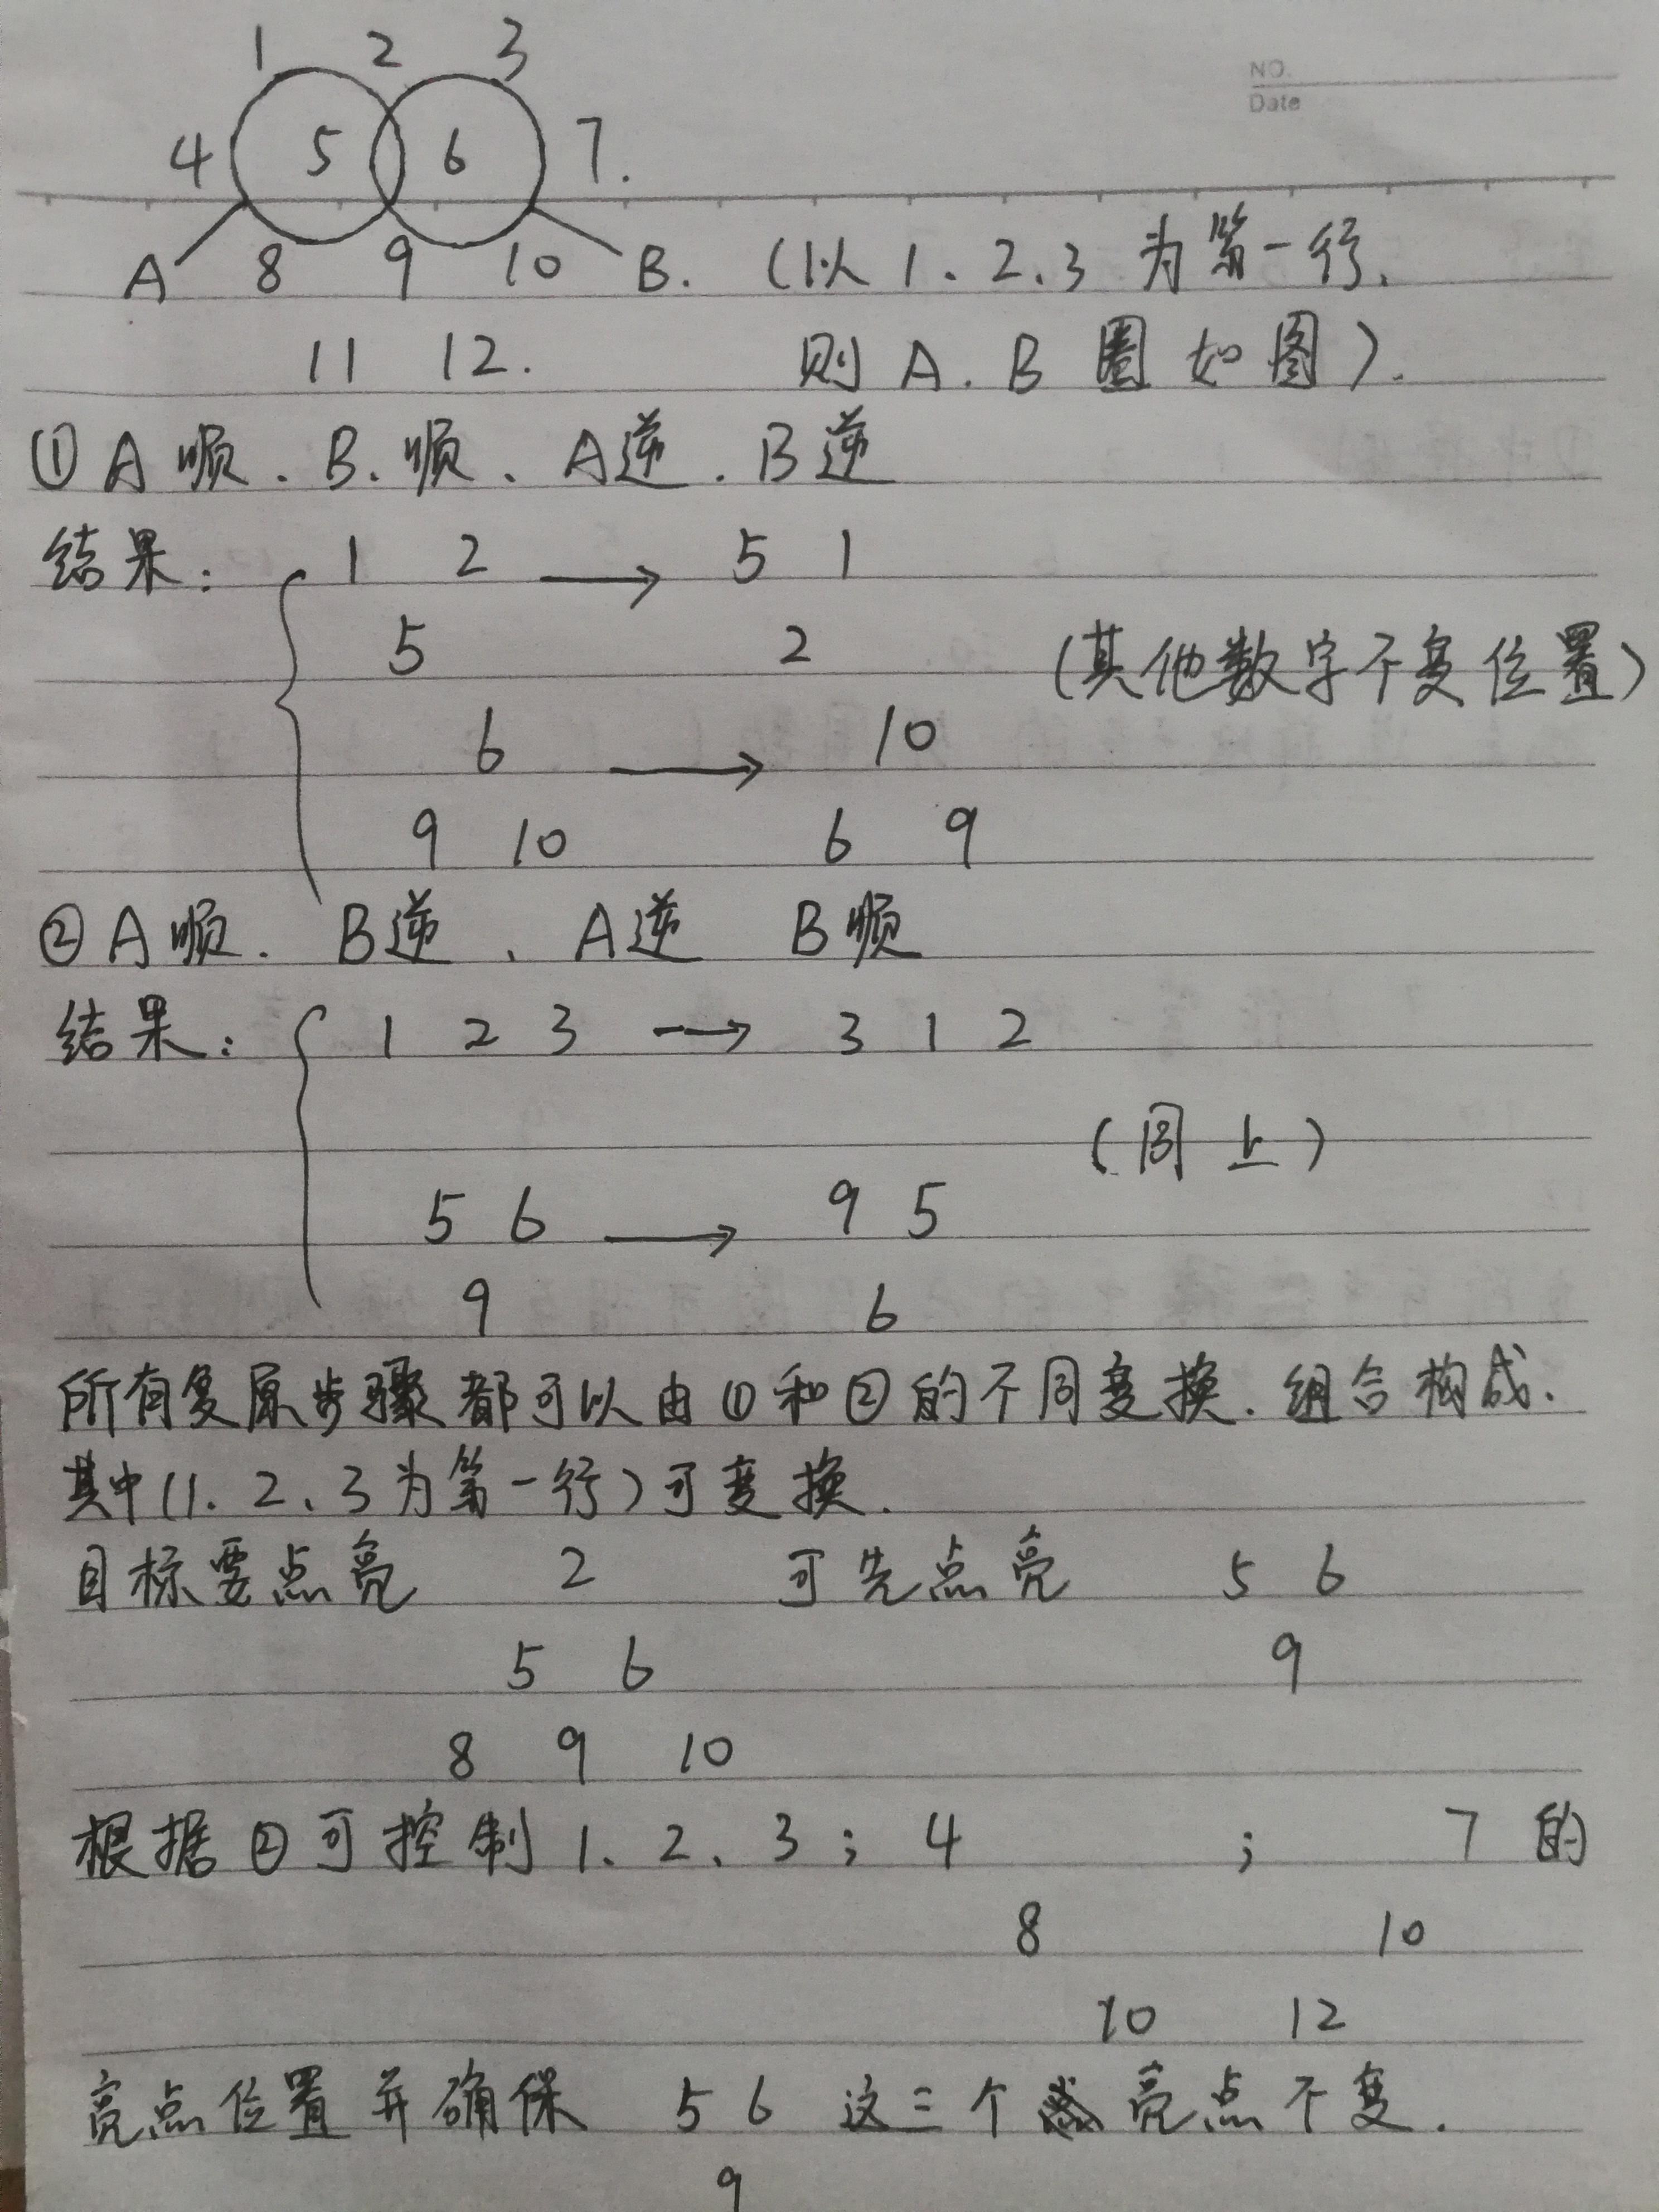 1 2 3
NO.
Date
4 5 6 7.
A 8 9 10 B. (以 1、2、3 为第一行、
11 12. 则 A、B 圈 如 图).
① A 顺、B、顺、A逆、B逆
结果: 1 2 → 5 1
5 2 (其他数字不变位置)
6 → 10
9 10 6 9
② A顺. B逆、A逆 B顺
结果: 1 2 3 → 3 1 2
(同上)
5 6 → 9 5
9 6
所有复原步骤都可以由①和②的不同变换.组合构成.
其中(1、2、3为第一行)可变换.
目标要点亮 2 可先点亮 5 6
5 6 9
8 9 10
根据②可控制1、2、3; 4 ; 7 的
8 10
10 12
亮点位置并确保 5 6 这三个亮点不变.
9